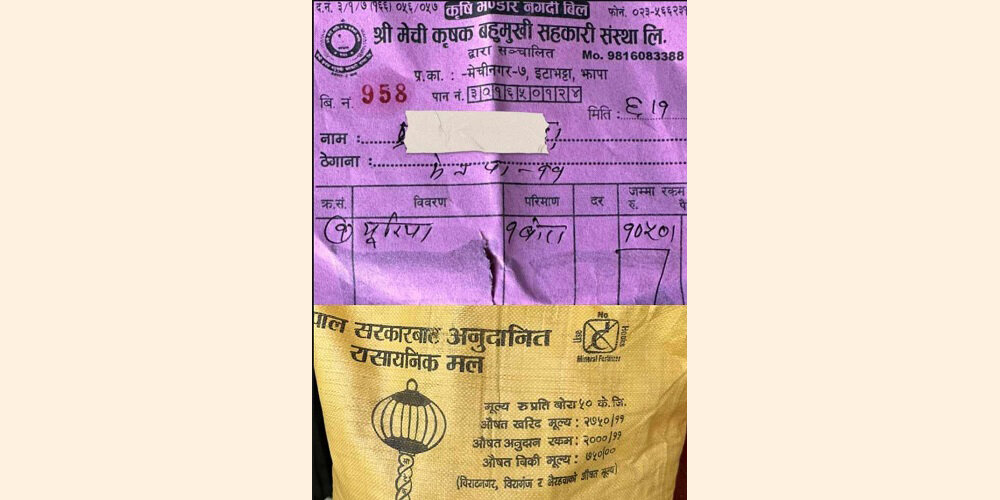 द.नं. ३/१/७ (१६६) ०५६/०५७
कृषि भण्डार नगदी बिल
फोनं. ०२३-५६६२३१
श्री मेची कृषक बहुमुखी सहकारी संस्था लि.
द्वारा सञ्चालित
Mo. 9816083388
प्र.का. : -मेचीनगर-७, इटाभट्टा, झापा
बि नं. 958
पान नं. ३०१६५०१२४
मिति : ६।१
नाम :
ठेगाना :
मे न पा - ११
क्र.सं. विवरण परिमाण दर जम्मा रकम
रु. पै
१ यूरिया १ बोरा १०५०।
पाल सरकारबाट अनुदानित
रासायनिक मल
No
Hooks
Mineral Fertilizer
मूल्य रु प्रति बोरा ५० के.जि.
औषत खरिद मूल्य : २७५०/११
औषत अनुदान रकम : २०००/११
औषत बिक्री मूल्य : ७५०/००
(विराटनगर, विरागंज र भैरहवाको औषत मूल्य)